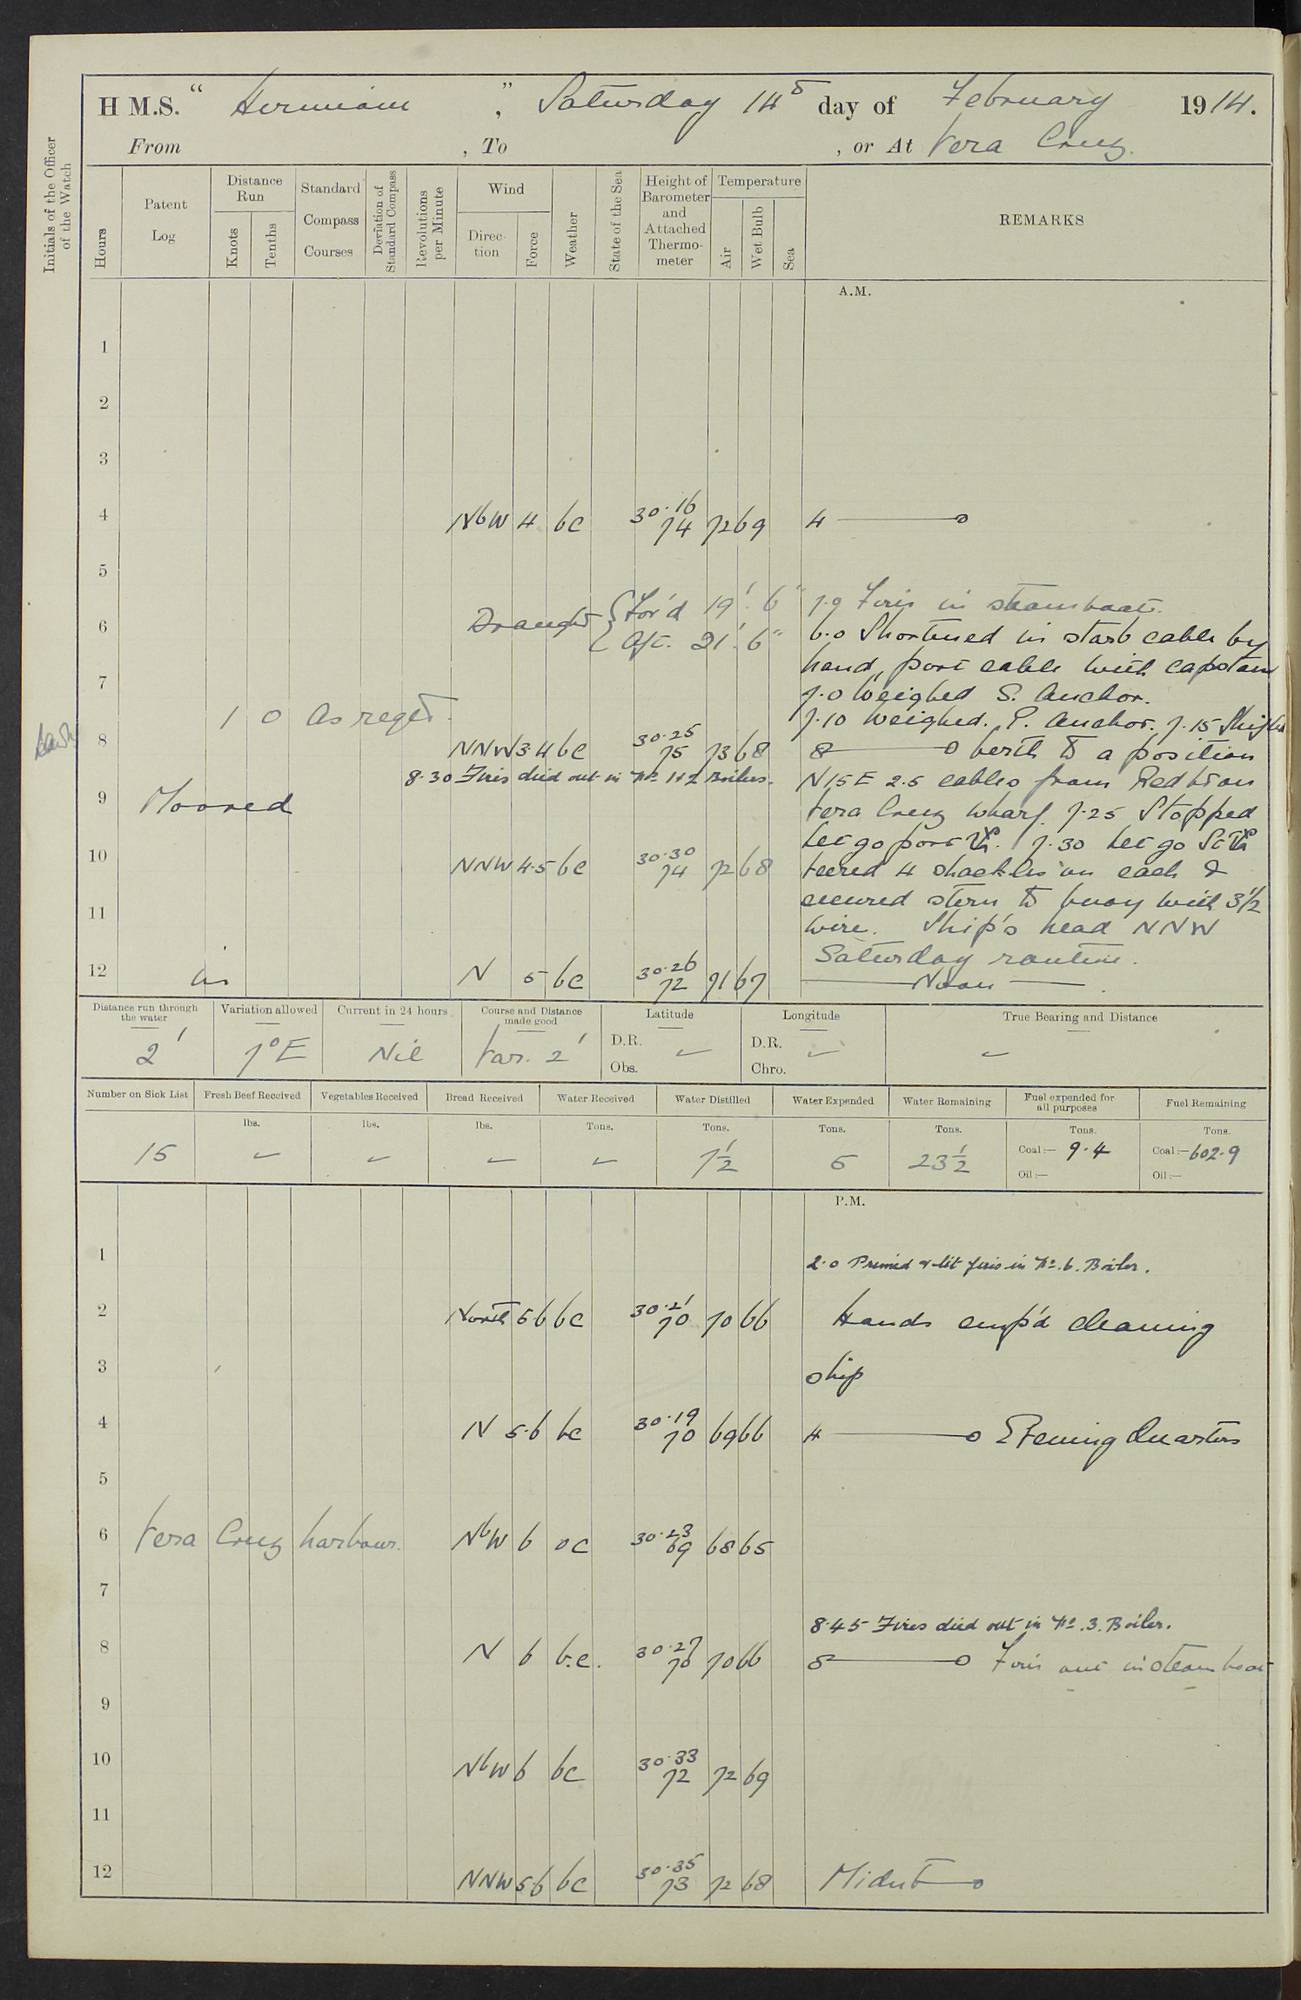 H M.S. " Hermione ", Saturday 14th day of February 1914.
From , To , or At Vera Cruz.
Initials of the Officer of the Watch
Hours
Patent Log
Distance Run
Knots
Tenths
Standard Compass Courses
Deviation of Standard Compass
Revolutions per Minute
Wind
Direction
Force
Weather
State of the Sea
Height of Barometer and Attached Thermometer
Temperature
Air
Wet Bulb
Sea
REMARKS
A.M.
1
2
3
4 NbW 4 bc 30.16 74 72 69 4
5
Draught { For'd 19'. 6" 7.9 Fires in steamboat.
6 Aft. 21'. 6" 6.0 Shortened in starb cable by
hand, port cable with capstan
7 7.0 Weighed S. Anchor.
1 0 As reqd. 7.10 Weighed P. Anchor. 7.15 Shifted
8 NNW 3.4 bc 30.25 75 73 68 8 berth to a position
8.30 Fires died out in No 1 & 2 Boilers. N15E 2.5 cables from Red Lt on
9 Moored Vera Cruz Wharf. 7.25 Stopped
Let go port. 7.30 Let go St
10 NNW 4.5 bc 30.30 74 72 68 veered 4 shackles on each &
secured stern to buoy with 3½
11 wire. Ship's head NNW
Saturday routine.
12 in N 5 bc 30.26 72 71 67 Noon
Distance run through the water 2'
Variation allowed 7°E
Current in 24 hours Nil
Course and Distance made good Var. 2'
Latitude D.R. Obs. ✓
Longitude D.R. Chro. ✓
True Bearing and Distance ✓
Number on Sick List 15
Fresh Beef Received lbs. ✓
Vegetables Received lbs. ✓
Bread Received lbs. ✓
Water Received Tons. ✓
Water Distilled Tons. 7½
Water Expended Tons. 5
Water Remaining Tons. 23½
Fuel expended for all purposes Tons. Coal:— 9.4 Oil:—
Fuel Remaining Tons. Coal:— 602.9 Oil:—
P.M.
1 2.0 Primed & lit fires in No. 6. Boiler.
2 North 5.6 bc 30.21 70 70 66 Hands emp'd cleaning
3 ship
4 N 5.6 bc 30.19 70 69 66 4 Evening Quarters
5
6 Vera Cruz harbour. NbW 6 oc 30.23 69 68 65
7
8.45 Fires died out in No. 3. Boiler.
8 N 6 b.c. 30.27 70 70 66 8 Fires out in steamboat
9
10 NbW 6 bc 30.33 72 72 69
11
12 NNW 5.6 bc 30.35 73 72 68 Midnt